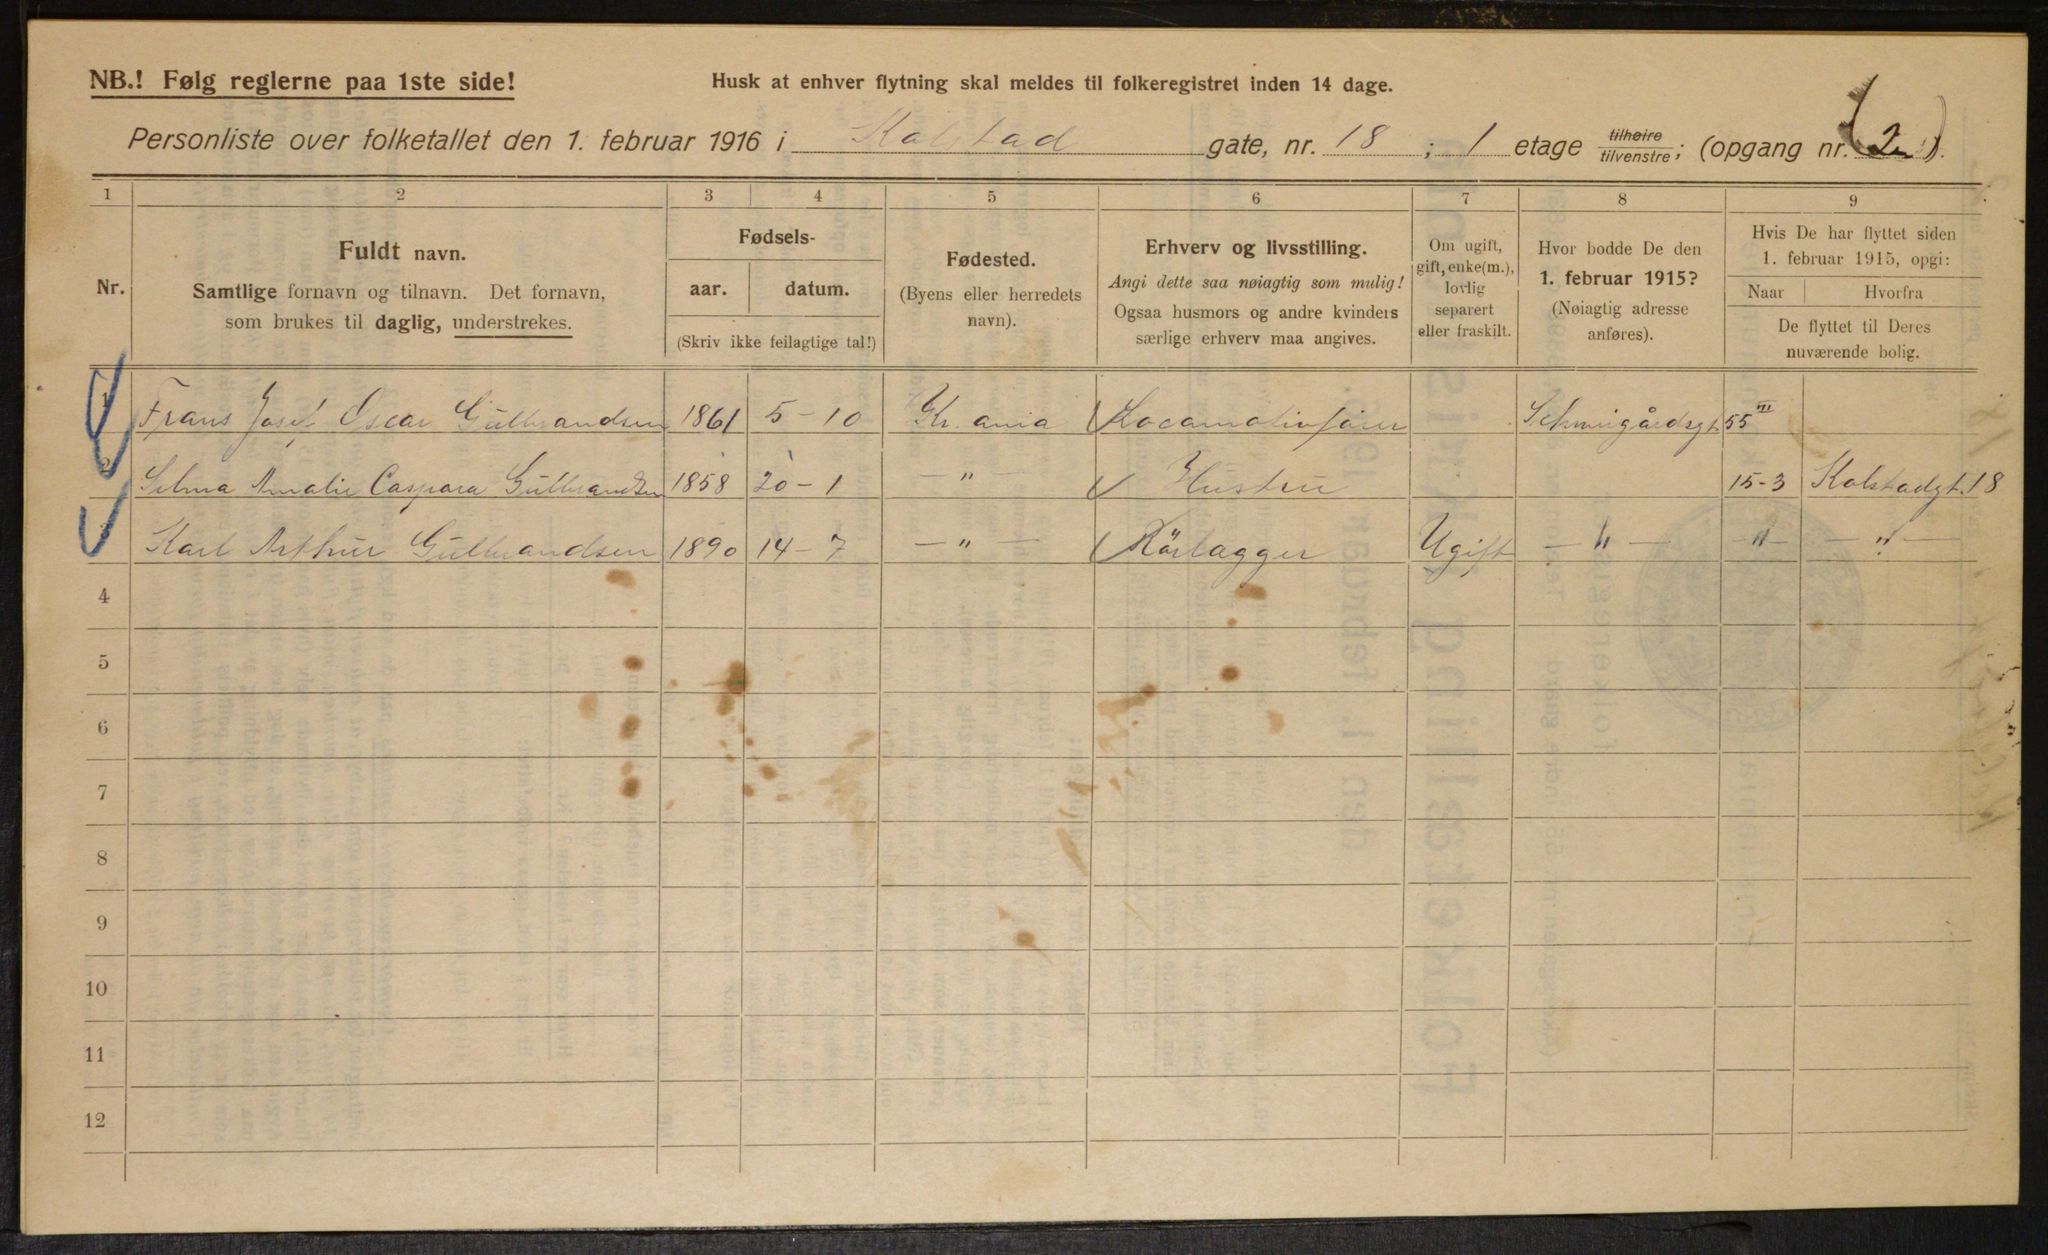 NB.! Følg reglerne paa 1ste side! Husk at enhver flytning skal meldes til folkeregistret inden 14 dage.
Personliste over folketallet den 1. februar 1916 i Kolstad gate, nr. 18 ; 1 etage tilhøire tilvenstre; (opgang nr. (2) ).
1 2 3 4 5 6 7 8 9
Nr.
Fuldt navn.
Samtlige fornavn og tilnavn. Det fornavn,
som brukes til daglig, understrekes.
Fødsels-
aar. datum.
(Skriv ikke feilagtige tal!)
Fødested.
(Byens eller herredets
navn).
Erhverv og livsstilling.
Angi dette saa nøiagtig som mulig!
Ogsaa husmors og andre kvinders
særlige erhverv maa angives.
Om ugift,
gift, enke(m.),
lovlig
separert
eller fraskilt.
Hvor bodde De den
1. februar 1915?
(Nøiagtig adresse
anføres).
Hvis De har flyttet siden
1. februar 1915, opgi:
Naar Hvorfra
De flyttet til Deres
nuværende bolig.
1 Frans Josef Oscar Gulbrandsen 1861 5-10 Kr.ania Locamotivfører Schweigårdsgt 55 III
2 Selma Amalie Caspara Gulbrandsen 1858 20-1 — " — Hustru 15-3 Kolstadgt. 18
3 Karl Arthur Gulbrandsen 1890 14-7 — " — Rörlægger Ugift — " — — " — — " —
4
5
6
7
8
9
10
11
12